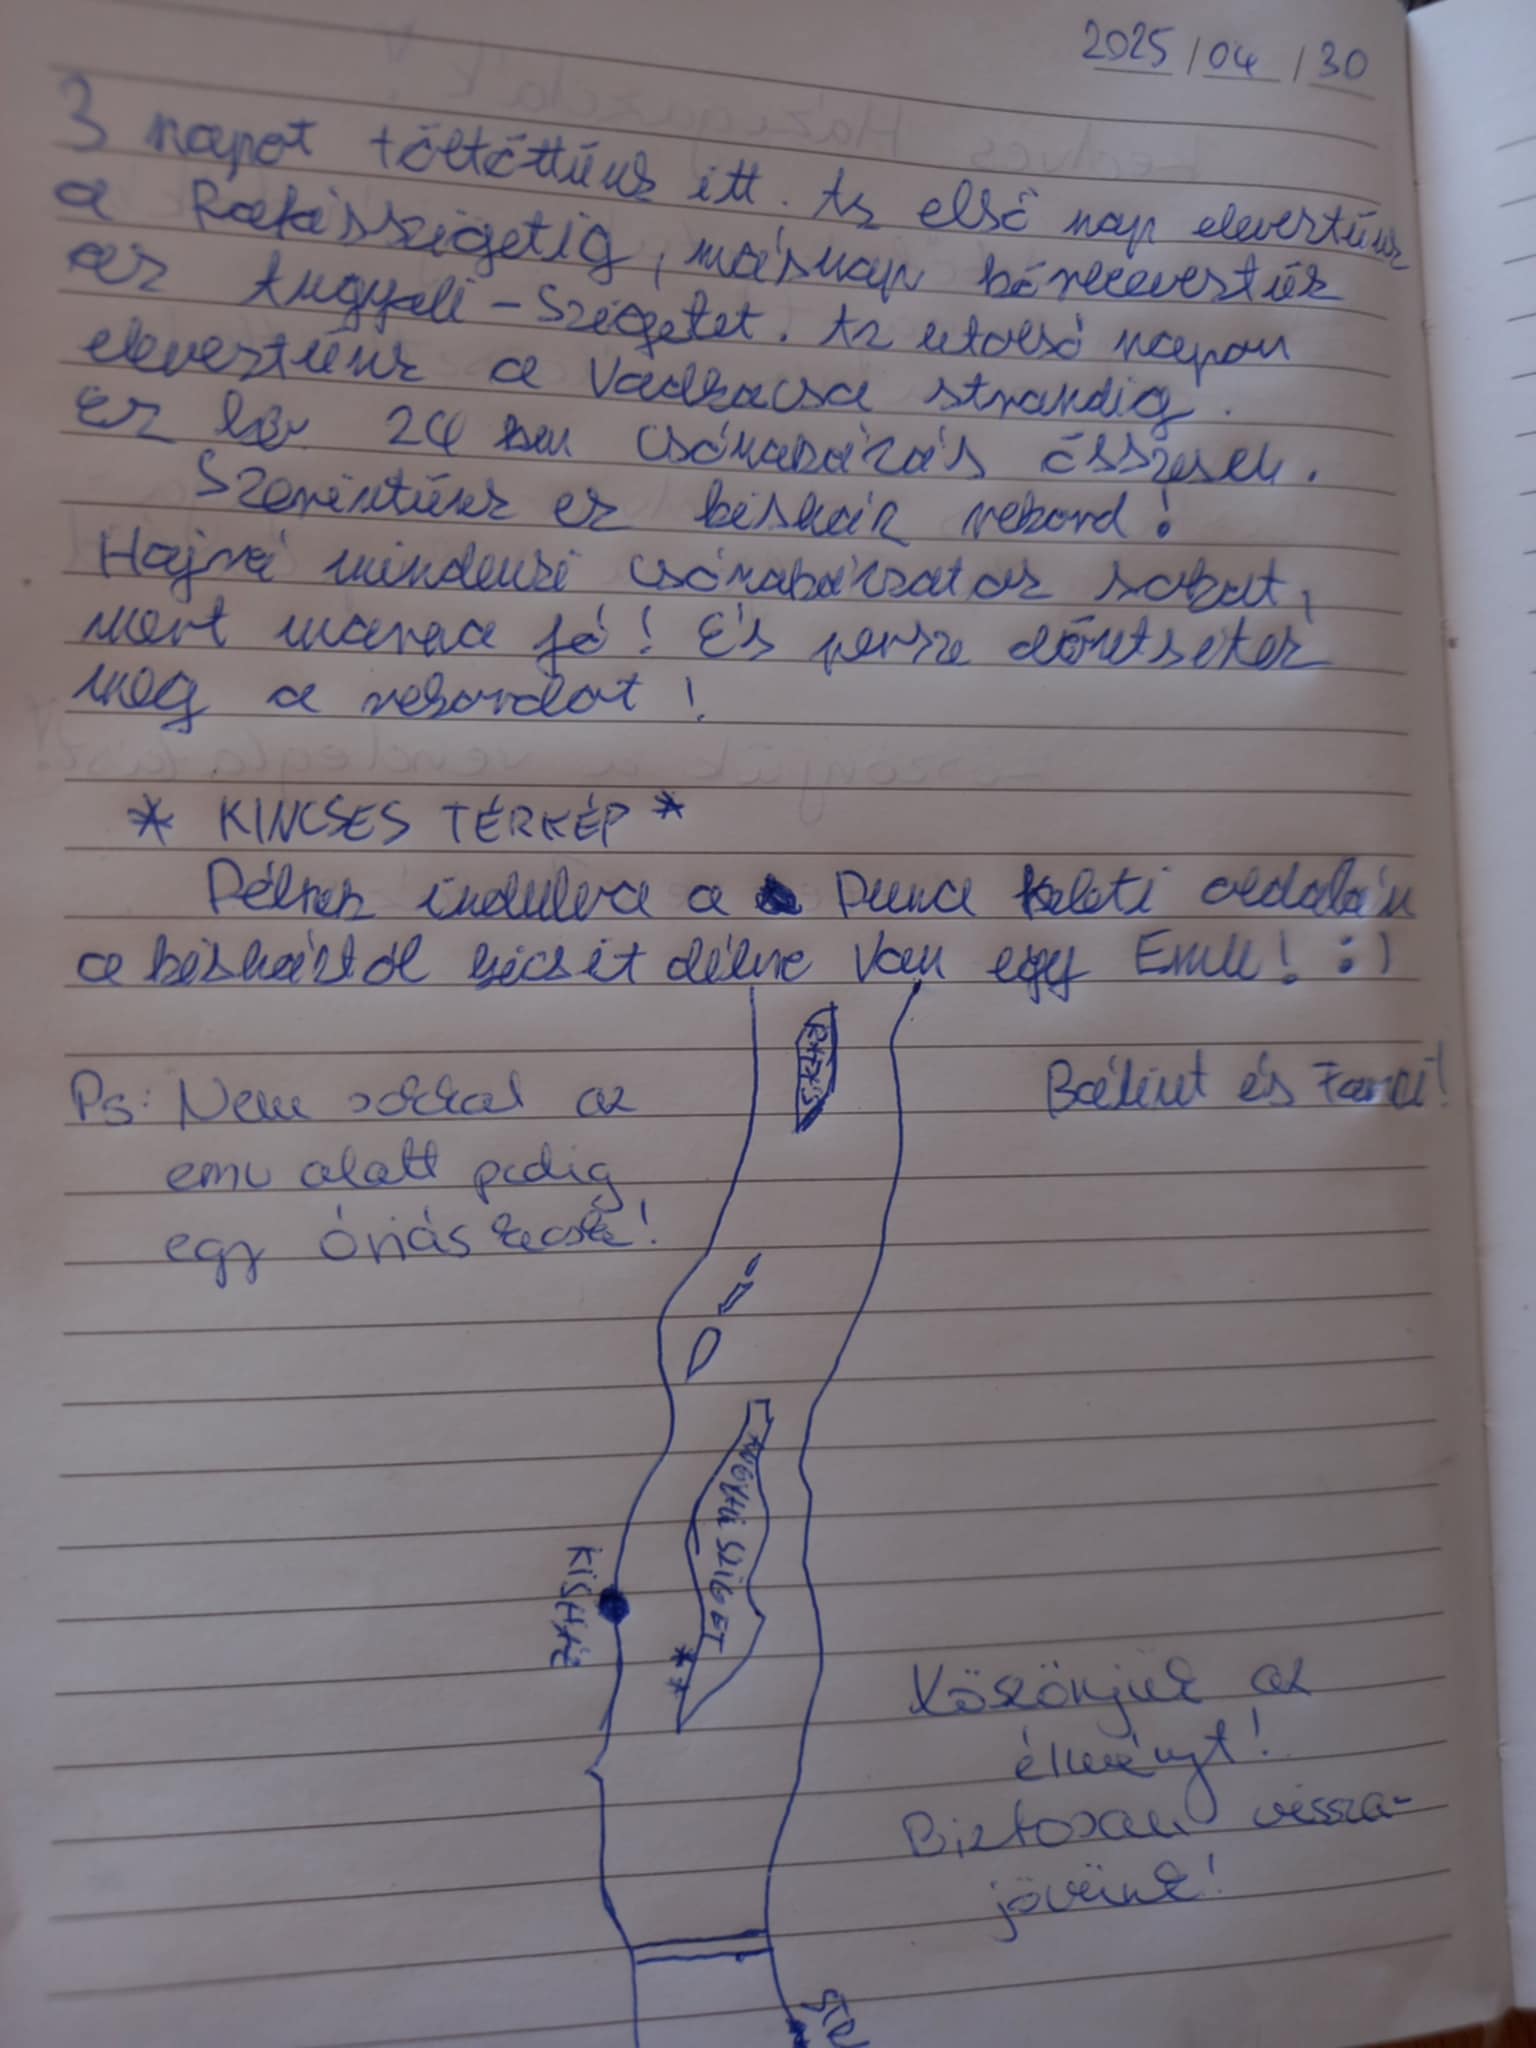 2025/04/30
3 napot töltöttünk itt. Az első nap eleveztünk
a Rákásszigetig, másnap körbeeveztük
az Angyali-Szigetet. Az utolsó napon
eleveztünk a Vadkacsa strandig.
Ez kb. 24 km csónakázás összesen.
Szerintünk ez kisház rekord!
Hajrá mindenki csónakázzatok sokat,
mert marha jó! És persze döntsétek
meg a rekordot!
* KINCSES TÉRKÉP *
Délnek indulva a Duna keleti oldalán
a kisháztól kicsit délre van egy Emu! :)
RÁKÁS
Ps: Nem sokkal az
emu alatt pedig
egy óriás kecske!
Bálint és Fanni!
ANGYALI SZIGET
KISHÁZ
**
Köszönjük az
élményt!
Biztosan vissza-
jövünk!